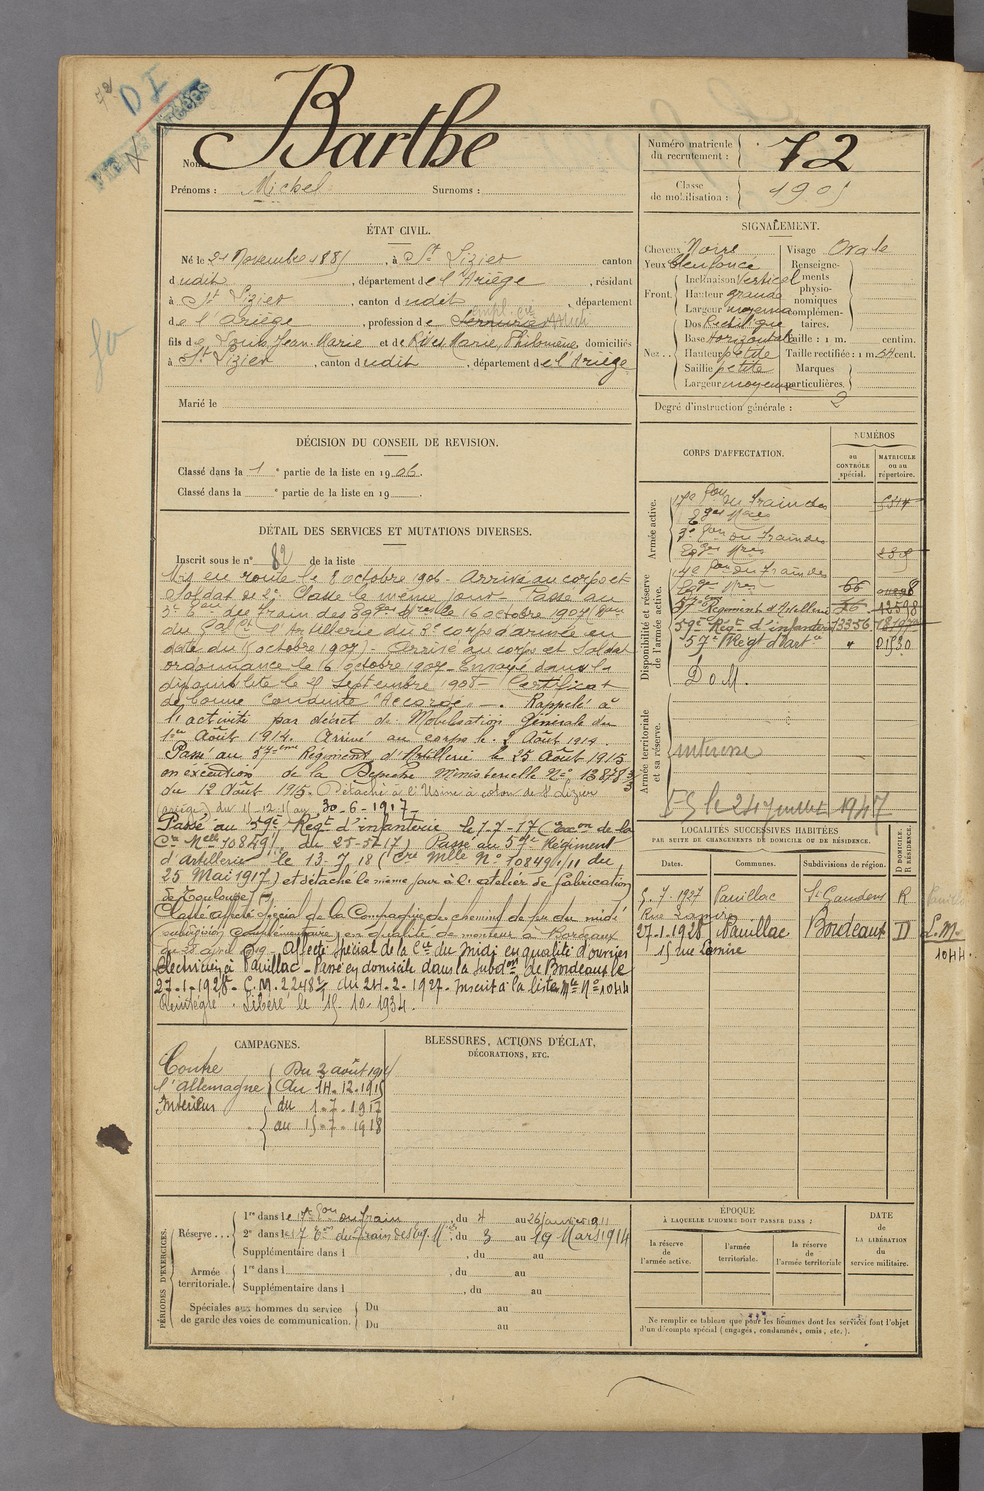 72
D I
Barthe
Nom :
Prénoms : Michel Surnoms :
Numéro matricule du recrutement : 72
Classe de mobilisation : 1905
ÉTAT CIVIL.
Né le 21 Novembre 1881, à St Lizier canton
dudit, département de l'Ariège, résidant
à St Lizier, canton dudit, département
de l'Ariège, profession de
fils de Louis, Jean-Marie et de Rives Marie, Philomène, domiciliés
à St Lizier, canton dudit, département de l'Ariège
Marié le
SIGNALEMENT.
Cheveux Noire Visage Ovale
Yeux Bleu foncé
Front. Inclinaison Vertical
Hauteur grande
Largeur moyenne
Nez Dos Rectiligne
Base horizontale
Hauteur petite
Saillie petite
Largeur moyenne
Renseignements physionomiques complémentaires.
Taille : 1 m. centim.
Taille rectifiée : 1 m. 54 cent.
Marques particulières.
Degré d'instruction générale : 2
DÉCISION DU CONSEIL DE REVISION.
Classé dans la 1e partie de la liste en 1906.
Classé dans la e partie de la liste en 19
DÉTAIL DES SERVICES ET MUTATIONS DIVERSES.
Inscrit sous le n° 82 de la liste
Mis en route le 8 octobre 1906. Arrivé au corps et
Soldat de 2e Classe le même jour. Passé au
3e Eon du Train des Eqges Mres le 16 octobre 1907
d'Artillerie du 3e corps d'armée en
date du 15 octobre 1907). Arrivé au corps et Soldat
ordonnance le 16 octobre 1907. Envoyé dans la
disponibilité le Septembre 1908 - Certificat
de bonne conduite "Accordé" -. Rappelé à
l'activité par décret de Mobilisation Générale du
1er Août 1914. Arrivé au corps le 3 Août 1914.
Passé au 57ème Régiment d'Artillerie le 25 Août 1915
en exécution de la Dépêche Ministerielle No
du 12 Août 1915. Détaché à l'Usine à coton de St Lizier
(Ariège) du 11-12-15 au 30-6-1917
Passé au 59e Régt d'infanterie le 1-7-17 (Exon de la
Cre Mlle 10849 du 25-5-17) Passé au 57e Régiment
d'Artillerie le 13.7.18 (Cre Mlle No 10849 1/11 du
25 Mai 1917) et détaché le même jour à l'atelier de fabrication
de Toulouse
Classé affecté Spécial de la Compagnie des chemins de fer du midi
(subdivision complémentaire) en qualité de monteur à Bordeaux
Affecté spécial de la Cie du Midi en qualité d'ouvrier
électricien à Pauillac - Passé en domicile dans la Subdon de Bordeaux le
27-1-1928. C.M. 2248 du 24-2-1927. Inscrit à la liste Mle No 1044
Réintégré. Libéré le 15-10-1934.
CORPS D'AFFECTATION.
NUMÉROS
au CONTRÔLE spécial.
MATRICULE ou au répertoire.
Armée active.
17e Eon du Train des Eqges Mres 5314
3e Eon du Train des Eqges Mres
Disponibilité et réserve de l'armée active.
17e Eon du Train des Eqges Mres 66
57ème Régiment d'Artillerie 13598
59e Régt d'infanterie 13356
57e Régt d'Artie " 21530
D.o.M.
Armée territoriale et sa réserve.
LOCALITÉS SUCCESSIVES HABITÉES
PAR SUITE DE CHANGEMENTS DE DOMICILE OU DE RÉSIDENCE.
Dates. Communes. Subdivisions de région. D DOMICILE. R RÉSIDENCE.
5.7.1927 Pauillac St Gaudens R
Rue Lamire
27-1-1928 Pauillac Bordeaux D L.M
15 rue Lamire 1044
CAMPAGNES.
Contre l'Allemagne { Du 3 août 1914
Au 14-12-1915
Intérieur { du 1-7-1917
au 15-7-1918
BLESSURES, ACTIONS D'ÉCLAT,
DÉCORATIONS, ETC.
PÉRIODES D'EXERCICES.
Réserve... 1re dans le 17e Eon du train, du 4 au 26 Janvier 1911
2e dans le 17 Eon du Train des Eq. Mres du 3 au 19 Mars 1914
Supplémentaire dans l , du au
Armée territoriale. 1re dans l , du au
Supplémentaire dans l , du au
Spéciales aux hommes du service de garde des voies de communication. Du au
Du au
ÉPOQUE
À LAQUELLE L'HOMME DOIT PASSER DANS :
la réserve de l'armée active. l'armée territoriale. la réserve de l'armée territoriale
DATE de LA LIBÉRATION du service militaire.
Ne remplir ce tableau que pour les hommes dont les services font l'objet
d'un décompte spécial (engagés, condamnés, omis, etc.).